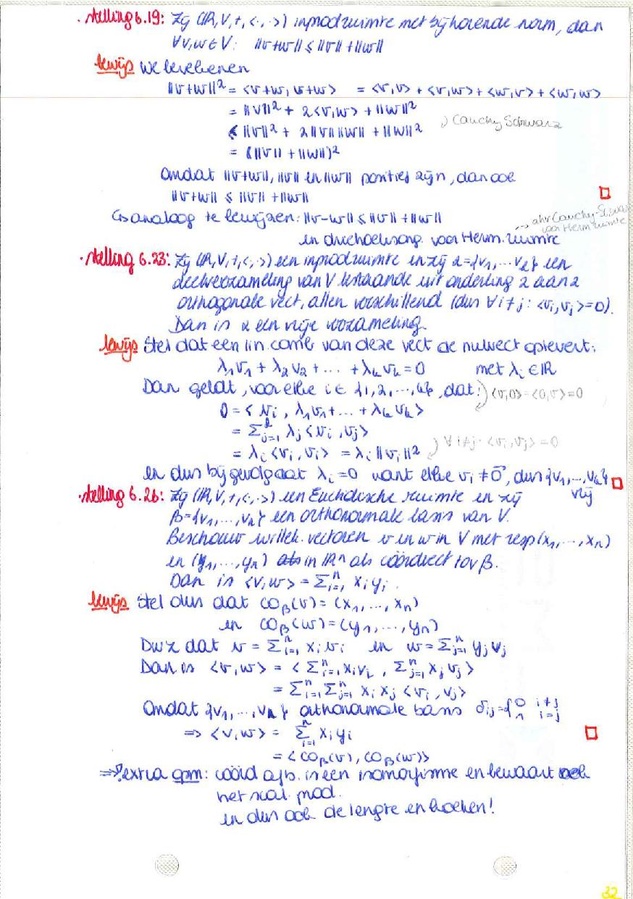 · stelling 6.19: Zij (ℝ,V,+,<·,·>) inprodruimte met bijhorende norm, dan
∀v,w∈V: ||v+w|| ≤ ||v||+||w||
bewijs We berekenen
||v+w||² = <v+w, v+w> = <v,v> + <v,w> + <w,v> + <w,w>
= ||v||² + 2<v,w> + ||w||²
≤ ||v||² + 2||v||||w|| + ||w||² ) Cauchy Schwarz
= (||v|| + ||w||)²
Omdat ||v+w||, ||v|| en ||w|| positief zijn, dan ook
||v+w|| ≤ ||v|| + ||w||
↪ analoog te bewijzen: ||v-w|| ≤ ||v|| + ||w||
en driehoeksong. voor Herm. ruimte
voor Herm ruimte
· stelling 6.23: Zij (ℝ,V,+,<·,·>) een inprodruimte en zij α={v₁,...v₂} een
deelverzameling van V bestaande uit onderling 2 aan 2
orthogonale vect, allen verschillend (dus ∀i≠j: <vᵢ,vⱼ>=0).
Dan is α een vrije verzameling.
bewijs Stel dat een lin comb van deze vect de nulvect oplevert:
λ₁v₁ + λ₂v₂ + ... + λₖvₖ = 0 met λᵢ∈ℝ
Dan geldt, voor elke i ∈ {1,2,...,k}, dat: ) <v,0>=<0,v>=0
0 = <vᵢ, λ₁v₁+...+λₖvₖ>
= Σʲ₌₁ᵏ λⱼ<vᵢ,vⱼ>
= λᵢ<vᵢ,vᵢ> = λᵢ||vᵢ||² ) ∀i≠j: <vᵢ,vⱼ>=0
en dus bijgevolg λᵢ=0 want elke vᵢ≠0, dus {v₁,...,vₖ}
vrij
· stelling 6.26: Zij (ℝ,V,+,<·,·>) een Euclidische ruimte en zij
β={v₁,...,vₙ} een orthonormale basis van V.
Beschouw willek. vectoren v en w in V met resp (x₁,...,xₙ)
en (y₁,...,yₙ) als in ℝⁿ als coördvect tov β.
Dan is <v,w> = Σᵢ₌₁ⁿ xᵢyᵢ.
bewijs Stel dus dat co_β(v) = (x₁,...,xₙ)
en co_β(w) = (y₁,...,yₙ)
Dwz dat v = Σᵢ₌₁ⁿ xᵢvᵢ en w = Σⱼ₌₁ⁿ yⱼvⱼ
Dan is <v,w> = <Σᵢ₌₁ⁿ xᵢvᵢ, Σⱼ₌₁ⁿ xⱼvⱼ>
= Σᵢ₌₁ⁿ Σⱼ₌₁ⁿ xᵢxⱼ <vᵢ,vⱼ>
Omdat {v₁,...,vₙ} orthonormale basis δᵢⱼ={0 i≠j
1 i=j
⇒ <v,w> = Σᵢ₌₁ⁿ xᵢyᵢ
= <co_β(v), co_β(w)>
⇒ extra opm: coörd afb. is een isomorfisme en bewaart ook
het scal. prod.
en dus ook de lengte en hoeken!
32